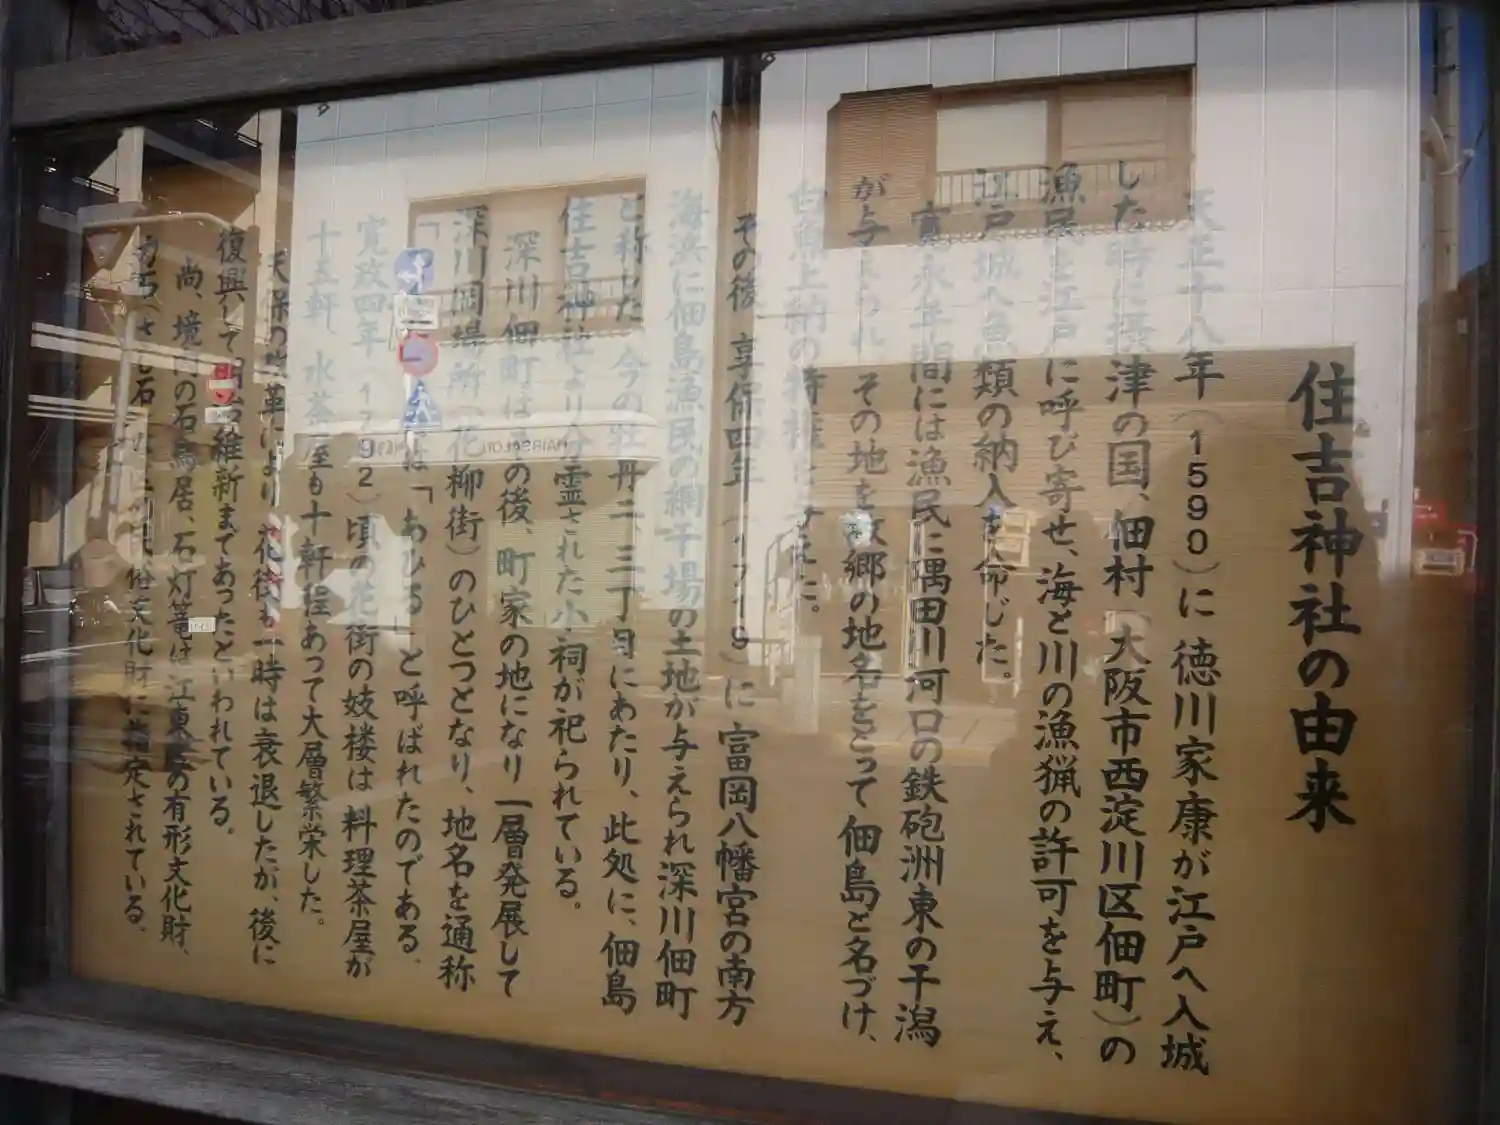 住吉神社の由来
天正十八年（1590）に徳川家康が江戸へ入城
した時に摂津の国、佃村（大阪市西淀川区佃町）の
漁民を江戸に呼び寄せ、海と川の漁猟の許可を与え、
江戸城へ魚類の納入を命じた。
寛永年間には漁民に隅田川河口の鉄砲洲東の干潟
が与えられ、その地を故郷の地名をとって佃島と名づけ、
白魚上納の特権を与えた。
その後、享保四年（1719）に富岡八幡宮の南方
海浜に佃島漁民の網干場の土地が与えられ深川佃町
と称した。今の牡丹二、三丁目にあたり、此処に、佃島
住吉神社より分霊された小祠が祀られている。
深川佃町はその後、町家の地になり一層発展して
深川岡場所（花柳街）のひとつとなり、地名を通称
は「あひる」と呼ばれたのである。
寛政四年（1792）頃の花街の妓楼は料理茶屋が
十五軒、水茶屋も十軒程あって大層繁栄した。
天保の改革により花街も一時は衰退したが、後に
復興して明治維新まであったといわれている。
尚、境内の石鳥居、石灯篭は江東区の有形文化財、
力石（さし石）民俗文化財に指定されている。
HAIRSALON